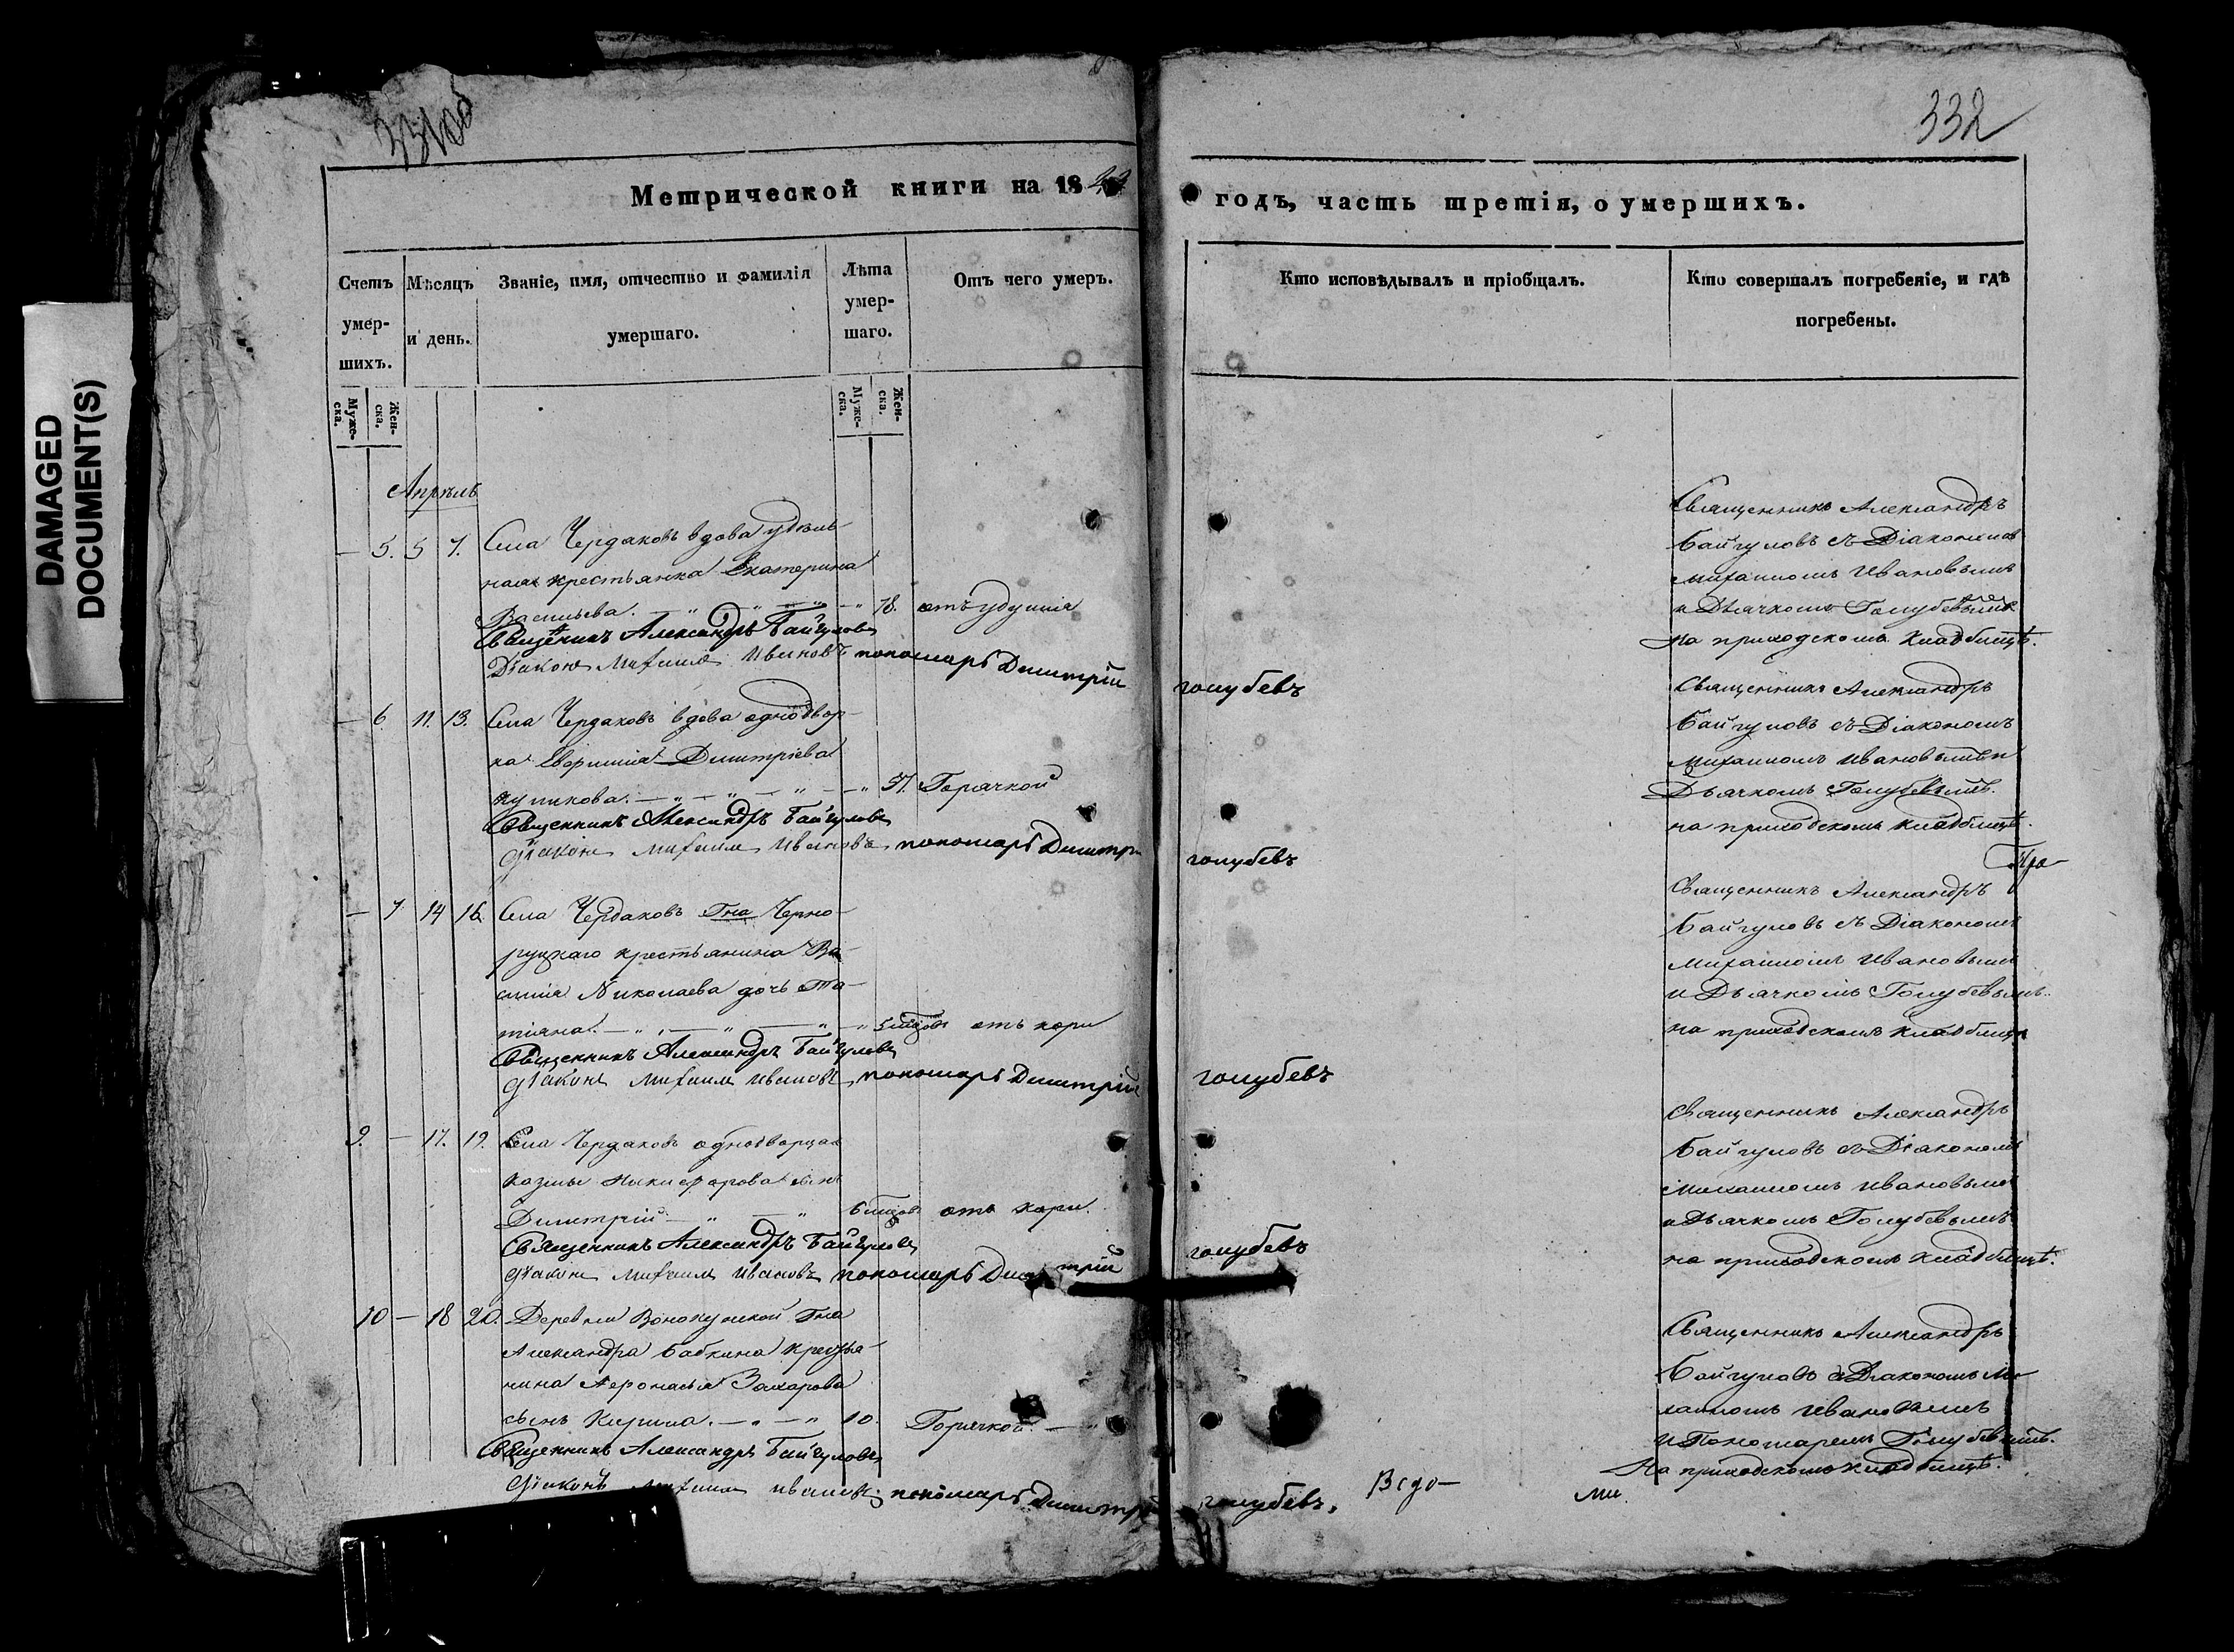 DAMAGED
DOCUMENT(S)
331 об
Метрической книги на 18
Счетъ умер-шихъ.
Мѣсяцъ и день.
Званіе, имя, отчество и фамилія умершаго.
Лѣта умер-шаго.
Отъ чего умеръ.
Муже-ска.
Жен-ска.
Муже-ска.
Жен-ска.
Апрѣль
— 5. 5 7. Села Чердаковъ вдова удѣль-
ная крестьянка Екатерина
Васильева. — „ — „ — „ 78. отъ удушія
Священникъ Александръ Байгуловъ
Діаконъ Михаилъ Ивановъ пономарь Димитрій
— 6. 11. 13. Села Чердаковъ вдова однодвор-
ка Димитріева
— „ — „ — „ — „ 57. Горячкой
Священникъ Александръ Байгуловъ
Діаконъ Михаилъ Ивановъ пономарь Димитр
— 7 14 16. Села Чердаковъ Гна Черно-
руцкаго крестьянина Ва-
силія Николаева дочь Та-
тіяна. — „ — „ — „ — „ 5 мѣсяцовъ отъ кори
Священникъ Александръ Байгуловъ
Діаконъ Михаилъ Ивановъ, пономарь Димитрій
9. — 17. 19. Села Чердаковъ однодворца
Козмы Никифорова сынъ
Димитрій — „ — „ 6 мѣсяцовъ отъ кори.
Священникъ Александръ Байгуловъ
Діаконъ Михаилъ Ивановъ пономарь Димитрій
10 — 18 20. Деревни Гна
Александра Бабкина крестья-
нина Аѳонасья Захарова
сынъ Кирила. — „ — „ 10. Горячкой. — „
Священникъ Александръ Байгуловъ
Діаконъ Михаилъ Ивановъ; пономарь Димитрій
332
годъ, часть третія, о умершихъ.
Кто исповѣдывалъ и пріобщалъ.
Кто совершалъ погребеніе, и гдѣ погребены.
Священникъ Александръ
Байгуловъ съ Діакономъ
Михаиломъ Ивановымъ
и Дьячкомъ Голубевымъ
на приходскомъ кладбищѣ.
голубевъ
Священникъ Александръ
Байгуловъ съ Діакономъ
Михаиломъ Ивановымъ и
Дьячкомъ Голубевымъ.
на приходскомъ кладбищѣ.
голубевъ
Священникъ Александръ
Байгуловъ съ Діакономъ
Михаиломъ Ивановымъ
и Дьячкомъ Голубевымъ.
на приходскомъ кладбищѣ
голубевъ
Священникъ Александръ
Байгуловъ съ Діакономъ
Михаиломъ Ивановымъ
и Дьячкомъ Голубевымъ
на приходскомъ кладбищѣ.
голубевъ
Священникъ Александръ
Байгуловъ съ Діакономъ Ми-
хаиломъ Ивановымъ
и Пономаремъ Голубевымъ.
На приходскомъ кладбищѣ.
голубевъ,